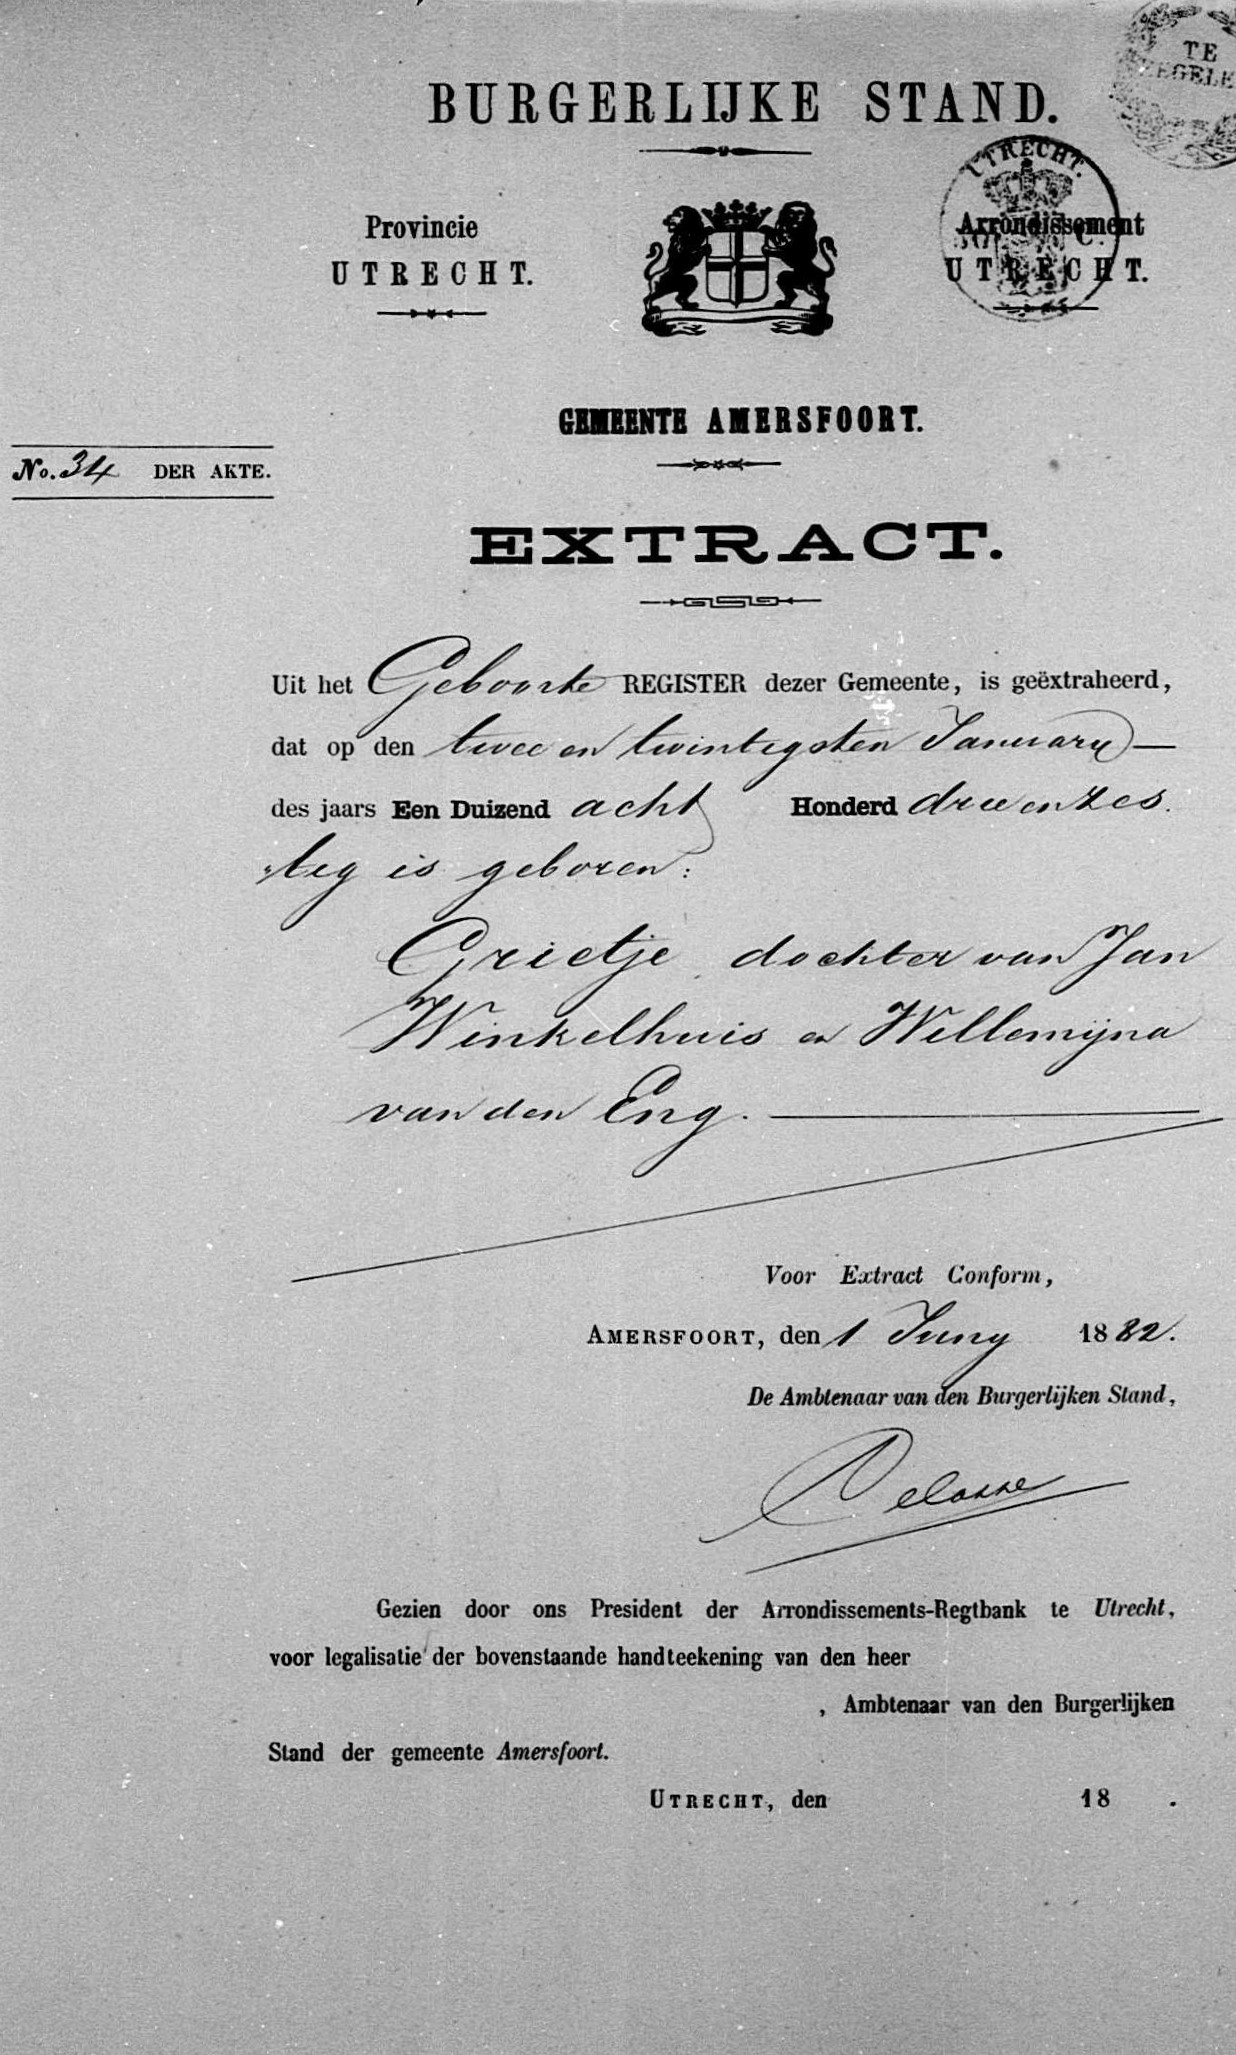 TE
ZEGELE
BURGERLIJKE STAND.
UTRECHT.
Provincie
UTRECHT.
Arrondissement
UTRECHT.
GEMEENTE AMERSFOORT.
No. 34 DER AKTE.
EXTRACT.
Uit het Geboorte REGISTER dezer Gemeente, is geëxtraheerd,
dat op den twee en twintigsten January —
des jaars Een Duizend acht Honderd drie en zes
"tig is geboren:
Grietje dochter van Jan
Winkelhuis en Willemijna
van den Eng. —
Voor Extract Conform,
AMERSFOORT, den 1 Juny 1882.
De Ambtenaar van den Burgerlijken Stand,
Gezien door ons President der Arrondissements-Regtbank te Utrecht,
voor legalisatie der bovenstaande handteekening van den heer
, Ambtenaar van den Burgerlijken
Stand der gemeente Amersfoort.
UTRECHT, den 18 .